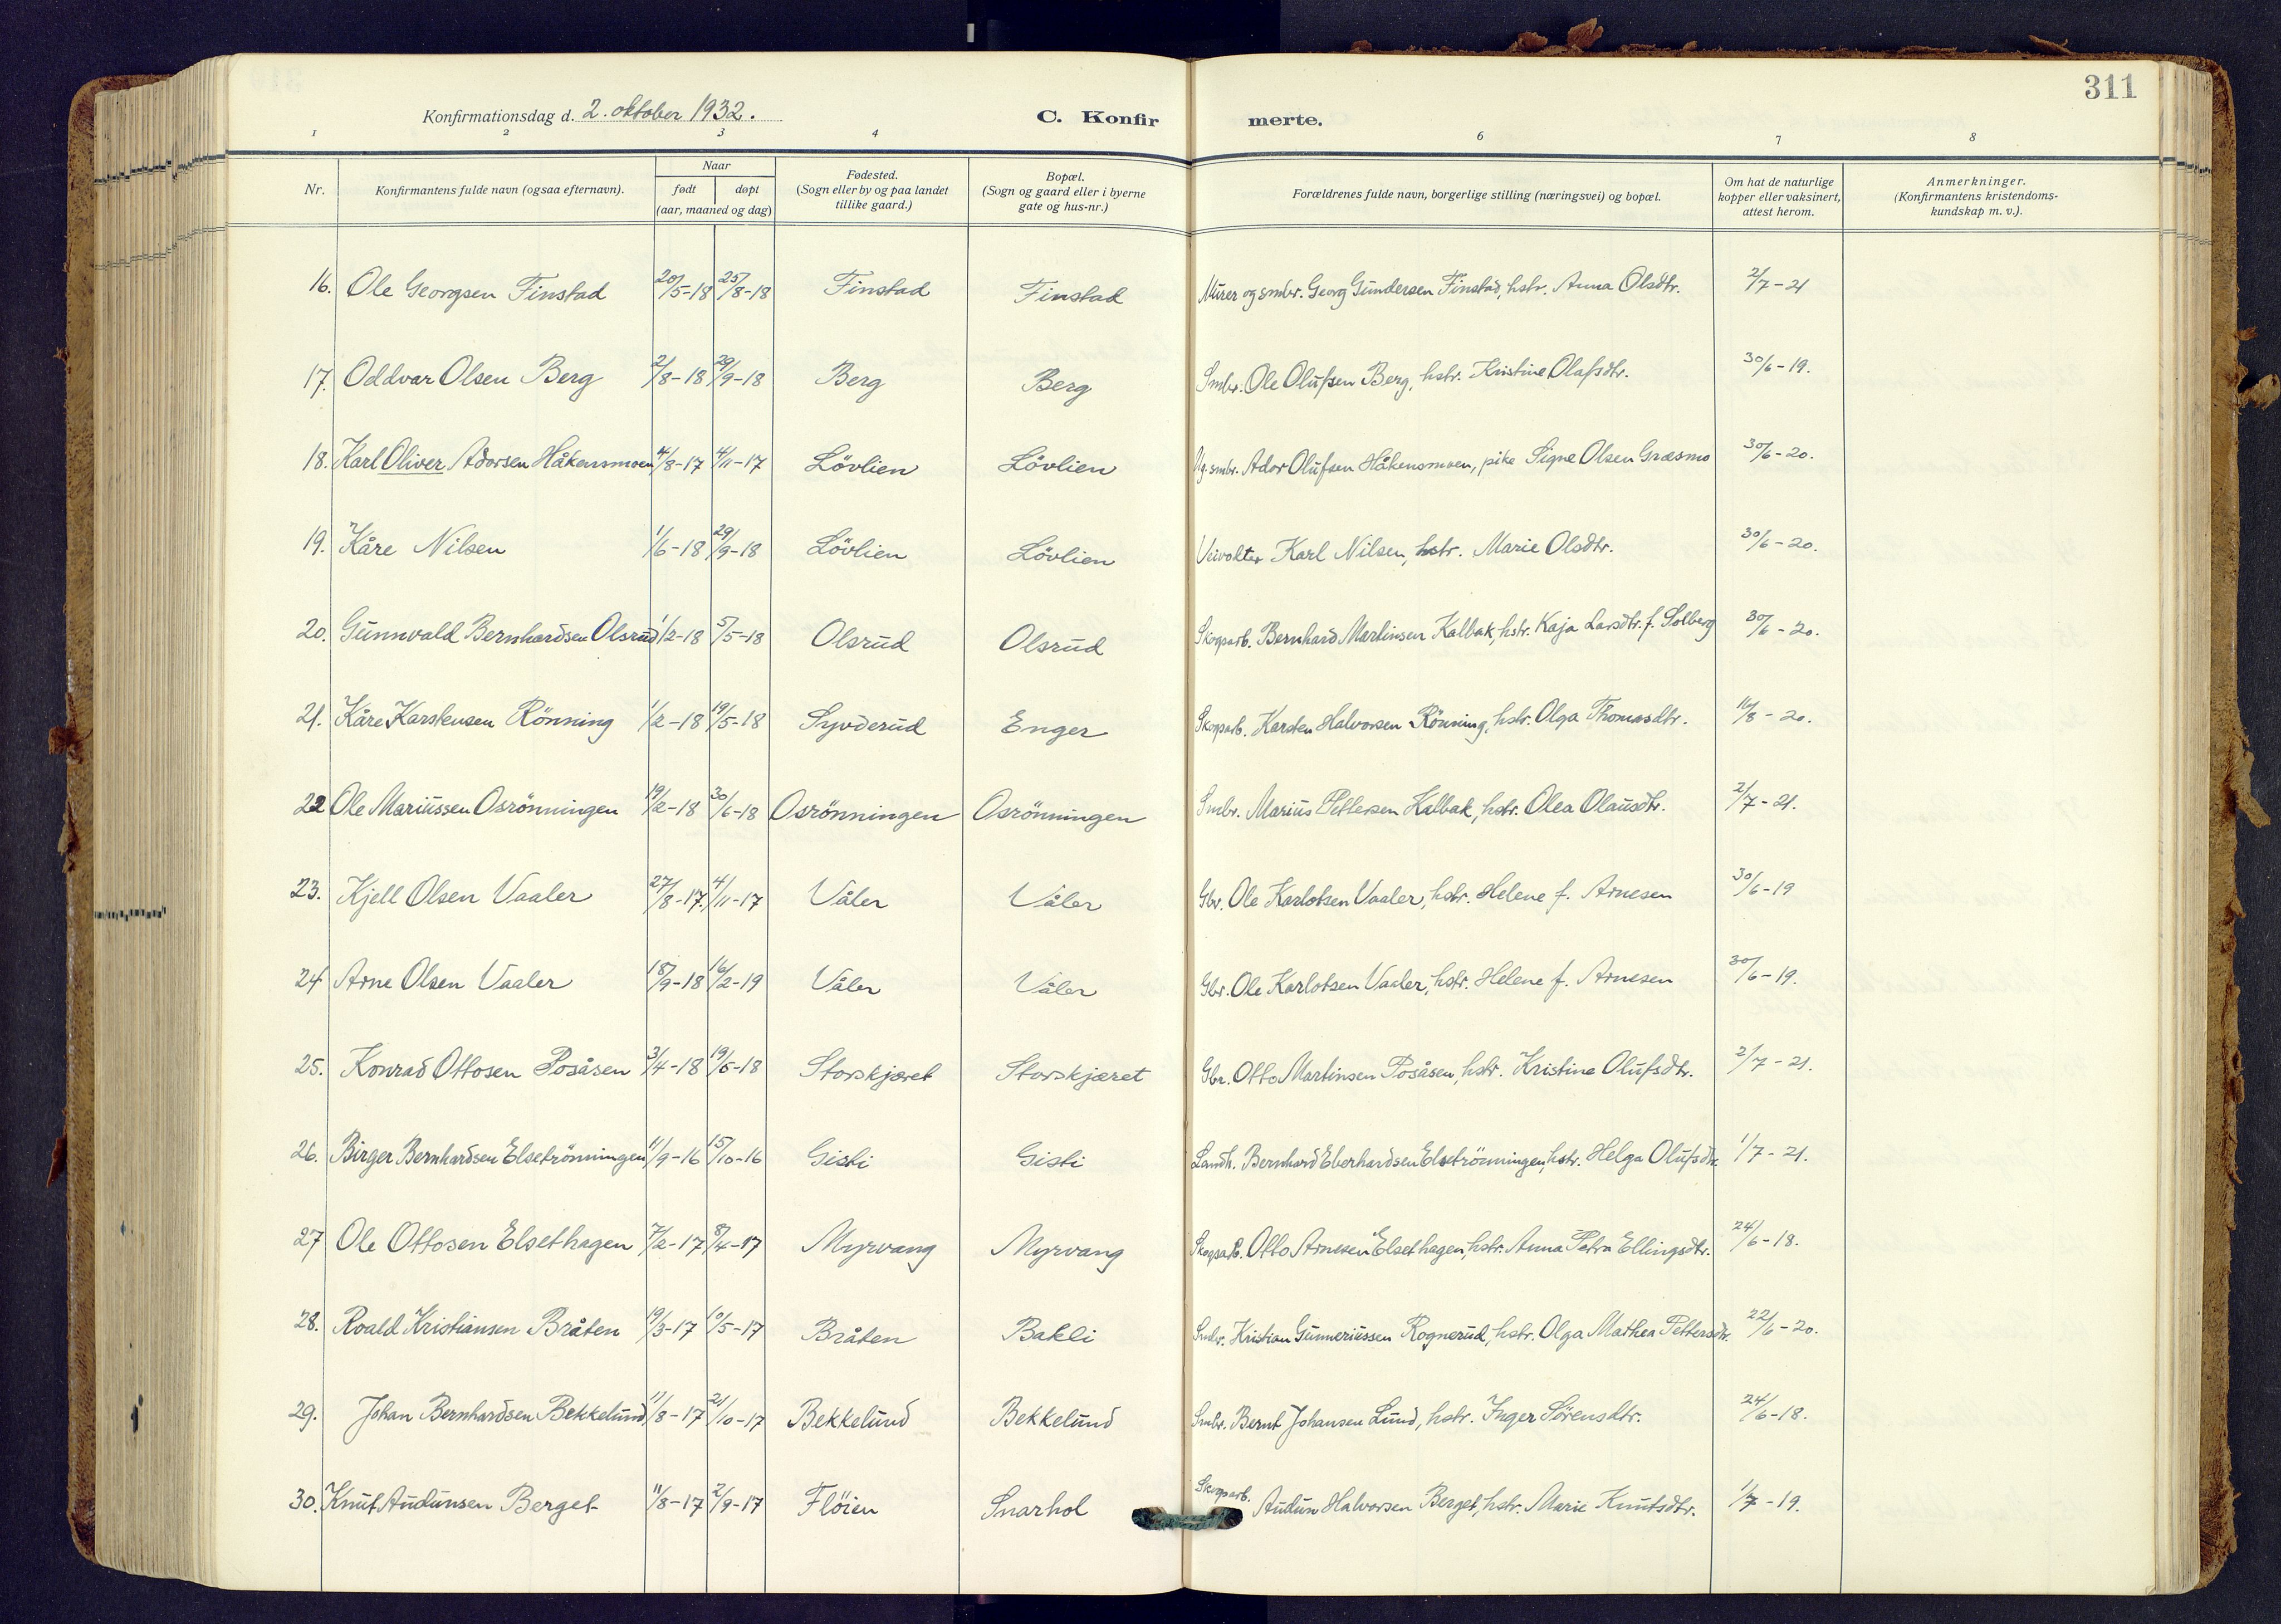 311
Konfirmationsdag d. 2. oktober 1932.
C. Konfirmerte.
1 2 3 4 6 7 8
Nr. Konfirmantens fulde navn (ogsaa efternavn). Naar født døpt (aar, maaned og dag) Fødested. (Sogn eller by og paa landet tillike gaard.) Bopæl. (Sogn og gaard eller i byerne gate og hus-nr.) Forældrenes fulde navn, borgerlige stilling (næringsvei) og bopæl. Om hat de naturlige kopper eller vaksinert, attest herom. Anmerkninger. (Konfirmantens kristendoms-kundskap m. v.).
16. Ole Georgsen Finstad 20/5-18 25/8-18 Finstad Finstad Murer og smbr. Georg Gundersen Finstad, hstr. Anna Olsdtr. 2/7-21
17. Oddvar Olsen Berg 2/8-18 29/9-18 Berg Berg Smbr. Ole Olufsen Berg, hstr. Kristine Olafsdtr. 30/6-19.
18. Karl Oliver Adorsen Håkensmoen 4/8-17 4/11-17 Lövlien Lövlien Ug. smbr. Ador Olufsen Håkensmoen, pike Signe Olsen Græsmo 30/6-20.
19. Kåre Nilsen 1/6-18 29/9-18 Lövlien Lövlien Veivokter Karl Nilsen, hstr. Marie Olsdtr. 30/6-20.
20. Gunnvald Bernhardsen Olsrud 1/2-18 5/5-18 Olsrud Olsrud Skogsarb. Bernhard Martinsen Kalbak, hstr. Kaja Larsdtr. f. Solberg 30/6-20.
21. Kåre Karstensen Rönning 1/2-18 19/5-18 Syvderud Enger Skogsarb. Karsten Halvorsen Rönning, hstr. Olga Thomasdtr. 16/8-20.
22 Ole Mariussen Osrönningen 19/2-18 30/6-18 Osrönningen Osrönningen Smbr. Marius Pettersen Kalbak, hstr. Olea Olausdtr. 2/7-21.
23. Kjell Olsen Vaaler 27/8-17. 4/11-17 Våler Våler Gbr. Ole Karlotsen Vaaler, hstr. Helene f. Arnesen 30/6-19
24 Arne Olsen Vaaler 18/9-18 16/2-19 Våler Våler Gbr. Ole Karlotsen Vaaler, hstr. Helene f. Arnesen 30/6-19.
25. Konrad Ottosen Posåsen 3/4-18 19/5-18 Storskjæret Storskjæret Gbr. Otto Martinsen Posåsen, hstr. Kristine Olufsdtr. 2/7-21.
26. Birger Bernhardsen Elsetrönningen 11/9-16 15/10-16 Gisti Gisti Landh. Bernhard Eberhardsen Elsetrönningen, hstr. Helga Olufsdtr. 1/7-21.
27 Ole Ottosen Elsethagen 7/2-17 8/4-17 Myrvang Myrvang Skogsarb. Otto Arnesen Elsethagen, hstr. Anna Petra Ellingsdtr. 24/6-18.
28. Roald Kristiansen Bråten 19/3-17 10/5-17 Bråten Bakli Smbr. Kristian Gunneriussen Rognerud, hstr. Olga Mathea Pettersdtr. 22/6-20.
29. Johan Bernhardsen Bekkelund 11/8-17 21/10-17 Bekkelund Bekkelund Smbr. Bernt Johansen Lund, hstr. Inger Sörensdtr. 24/6-18.
30. Knut Audunsen Berget 11/8-17 2/9-17 Flöien Snarhol Skogsarb. Audun Halvorsen Berget, hstr. Marie Knutsdtr. 1/7-19.